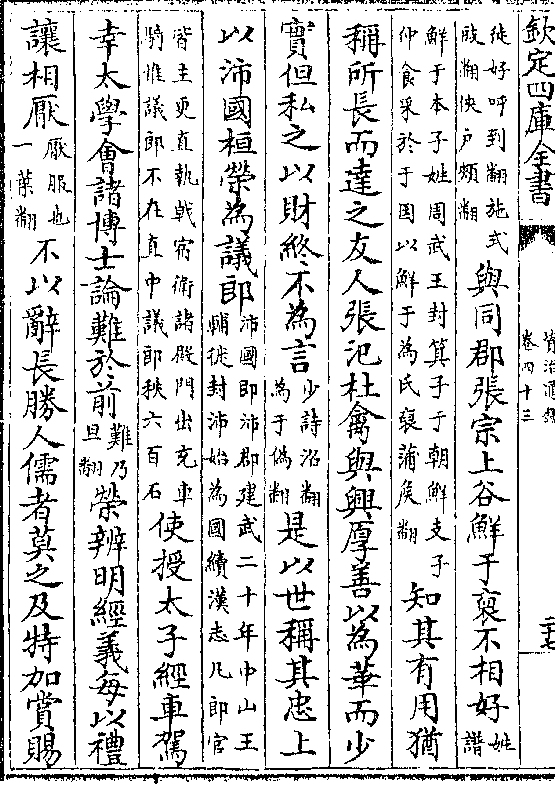 欽定四庫全書
資治通鑑
卷四十三
二十七
從好呼到翻施式
豉翻俠戶頰翻
與同郡張宗上谷鮮于裒不相好
姓譜
鮮于本子姓周武王封箕子于朝鮮支子
仲食采於于因以鮮于為氏裒蒲侯翻
知其有用猶
稱所長而達之友人張汜杜禽與興厚善以為華而少
實但私之以財終不為言
少詩沼翻
為于偽翻
是以世稱其忠上
以沛國桓榮為議郎
沛國即沛郡建武二十年中山王
輔徙封沛始為國續漢志凡郎官
皆主更直執戟宿衛諸殿門出充車
騎惟議郎不在直中議郎秩六百石
使授太子經車駕
幸太學會諸博士論難於前
難乃
旦翻
榮辨明經義每以禮
讓相厭
厭服也
一葉翻
不以辭長勝人儒者莫之及特加賞賜